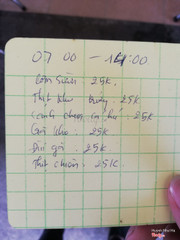 07 00 - 14:00
Cơm sườn 25K.
Thịt kho trứng: 25K
Canh chua cá hú: 25K
Gà kho : 25K
Đùi gà : 25K
Thịt chuôn : 25K